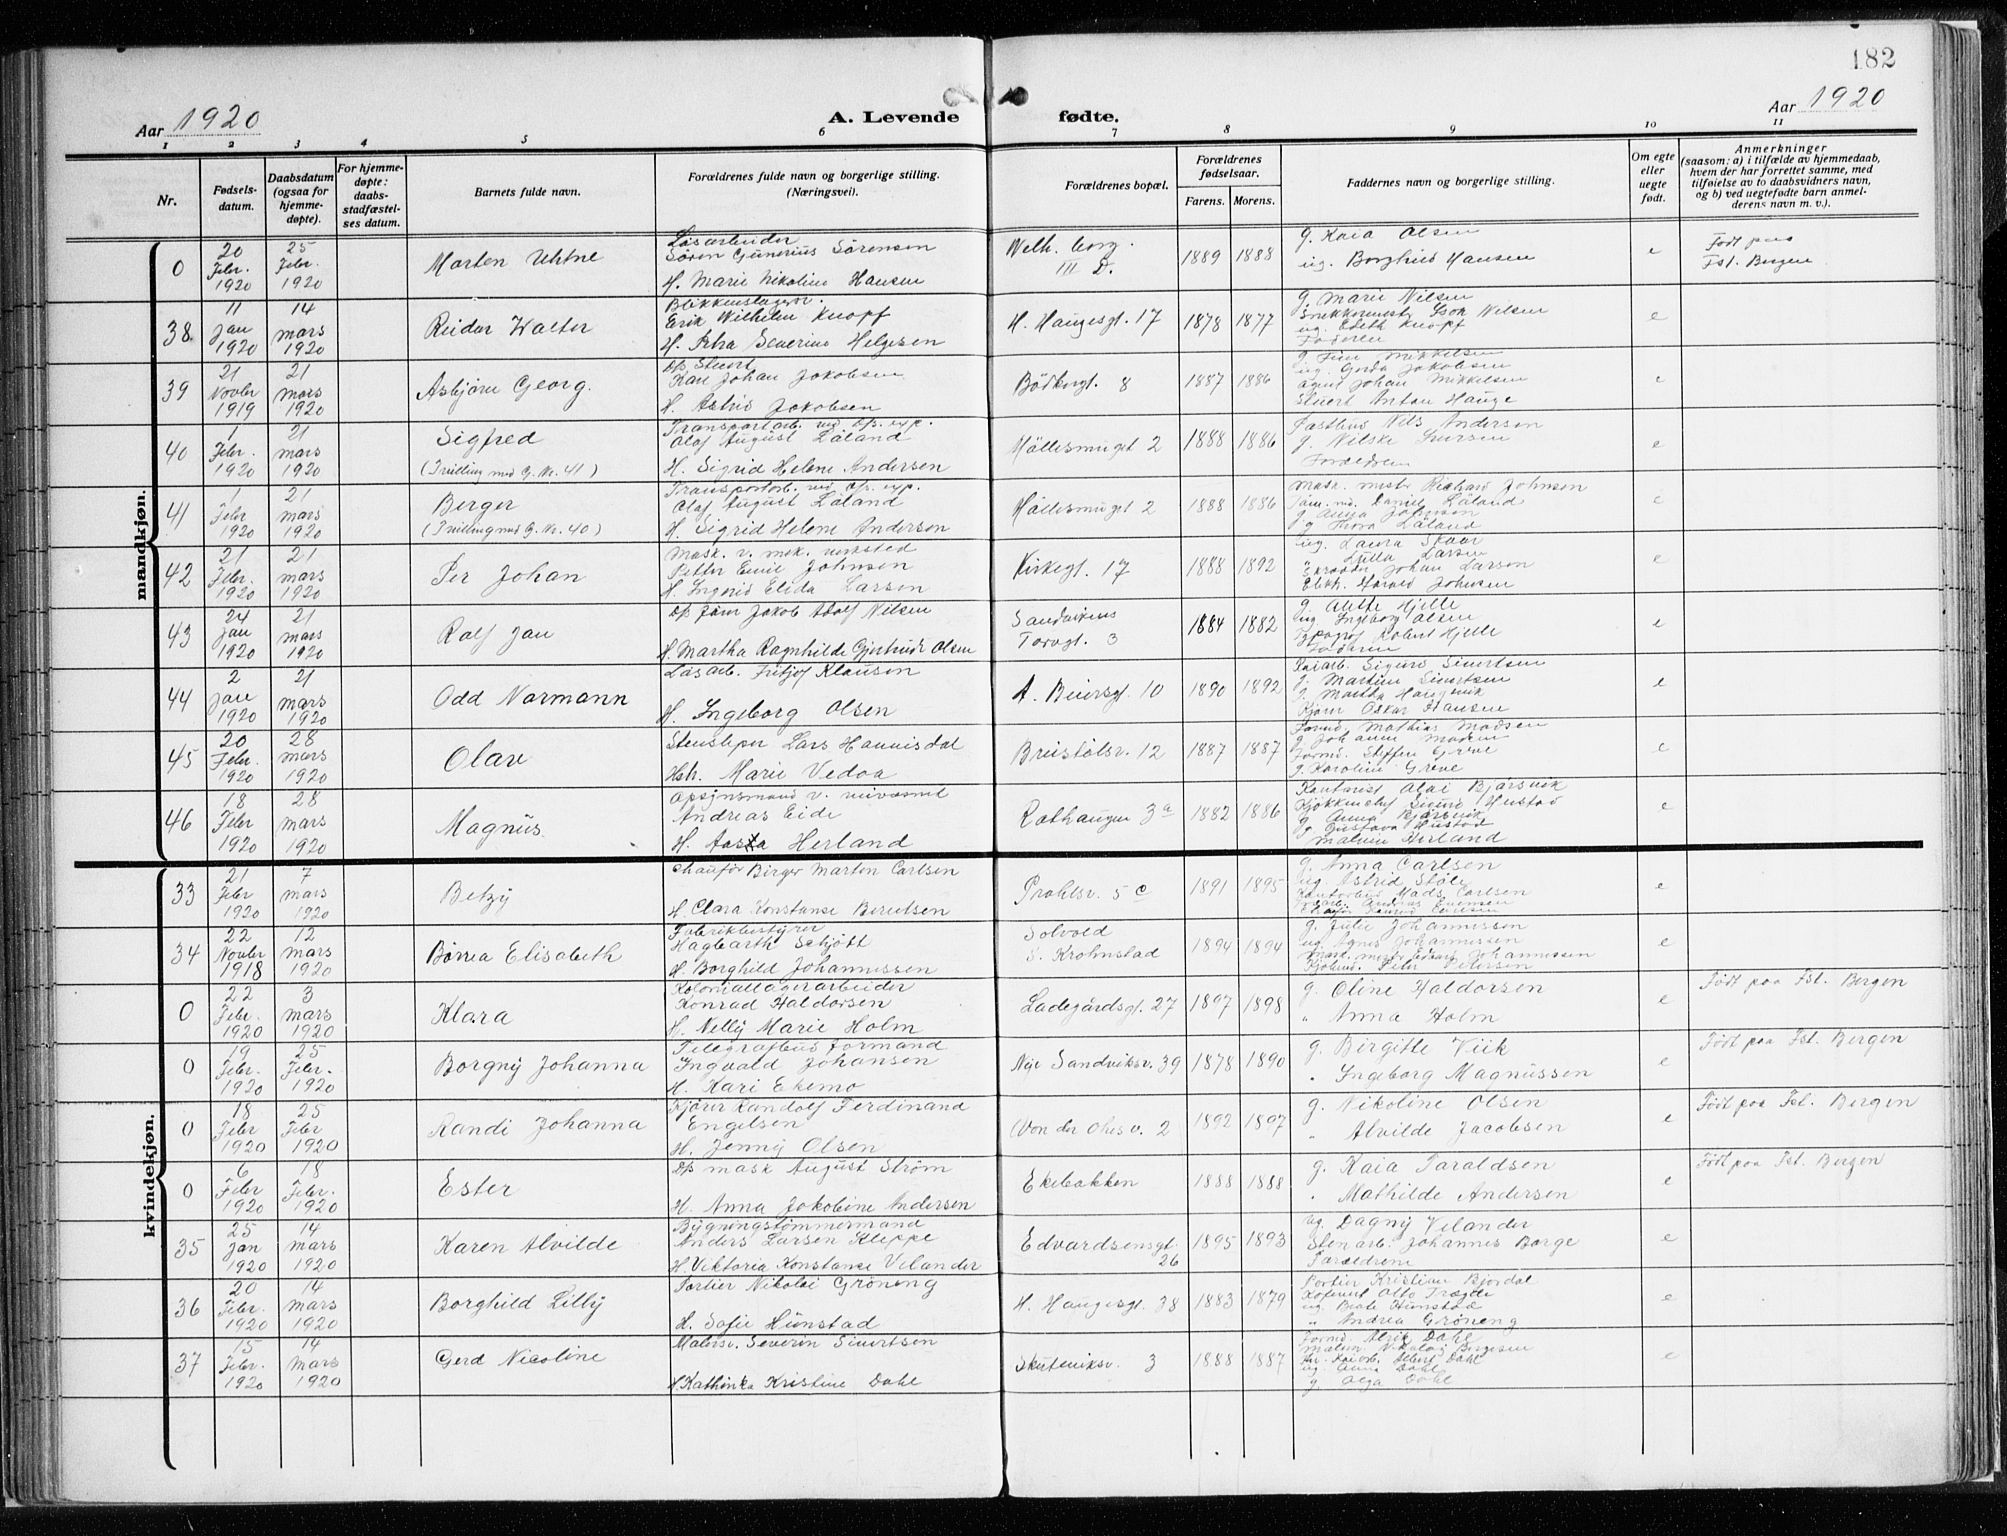 182
Aar 1920
A. Levende fødte.
Aar 1920
1 2 3 4 5 6 7 8 9 10 11
Nr.
Fødsels-
datum.
Daabsdatum
(ogsaa for
hjemme-
døpte).
For hjemme-
døpte:
daabs-
stadfæstel-
ses datum.
Barnets fulde navn.
Forældrenes fulde navn og borgerlige stilling.
(Næringsveil).
Forældrenes bopæl.
Forældrenes
fødselsaar.
Farens. Morens.
Faddernes navn og borgerlige stilling.
Om egte
eller
uegte
født.
Anmerkninger
(saasom: a) i tilfælde av hjemmedaab,
hvem der har forrettet samme, med
tilføielse av to daabsvidners navn,
og b) ved uegtefødte barn anmel-
derens navn m. v.).
mandkjøn.
0
20 Febr. 1920
25 Febr. 1920
Morten
Løsarbeider
Søren Gunerius Sørensen
H. Marie Nikoline Hansen
Welh. borg.
III D.
1889 1888
g. Kaia Olsen
ug. Borghild Hansen
e
Født paa
Fst. Bergen
38
11 Jan 1920
14 mars 1920
Reidar Walter
Blikkenslager
Erik Wilhelm Knopf
Severine Helgesen
H. Haugesgt. 17
1878 1877
g. Marie Nilsen
ug. Edith Knopf
Faderen
e
39
21 Novbr 1919
21 mars 1920
Asbjørn Georg.
D/s Stuert
Karl Johan Jakobsen
H. Astrid Jakobsen
Bødkergt. 8
1887 1886
ug. Gerda Jakobsen
agent Johan Mikkelsen
Stuert Anton Hauge
e
40
1 Febr. 1920
21 mars 1920
Sigfred
(Tvilling med G. Nr. 41)
Olaf August Låland
H. Sigrid Helene Andersen
Møllesmuget 2
1888 1886
Nils Andersen
Forældrene
e
41
1 Febr 1920
21 mars 1920
Berger
(Tvilling med G. Nr. 40)
Olaf August Låland
H. Sigrid Helene Andersen
Møllesmuget 2
1888 1886
Mask. mester Richard Johnsen
Daniel Låland
g. Anna Johnsen
g. Thora Låland
e
42
21 Febr. 1920
21 mars 1920
Per Johan
Mask. v. mek. verksted
Petter Emil Johnsen
H. Ingrid Elida Larsen
Kirkegt. 17
1888 1892
ug. Laura Skaar
" Lulla Larsen
Skrædder Johan Larsen
Elektr. Harald Johnsen
e
43
24 Jan 1920
21 mars 1920
Rolf Jan
D/s Tøm Jakob Adolf Nilsen
H. Martha Ragnhilde Gjertrude Olsen
Sandvikens
Torvgt. 3
1884 1882
g. Alette Hjelle
ug. Ingeborg Olsen
Typograf Robert Hjelle
Faderen
e
44
2 Jan 1920
21 mars 1920
Odd Normann
Løsarb. Fritjof Klausen
H. Ingeborg Olsen
A. Beiersgt. 10
1890 1892
Kaiarb. Sigurd Sivertsen
g. Martine Sivertsen
Oskar Hansen
e
45
20 Febr. 1920
28 mars 1920
Olav
Stensliper Lars Hannisdal
Hstr. Marie Vedoa
Breistølsv. 12
1887 1887
Formd. Mathias Madsen
g. Johanna Madsen
Formd. Steffen Greve
g. Karoline Greve
e
46
18 Febr 1920
28 mars 1920
Magnus.
Andreas Eide
H. Aasta Herland
Rothaugen 3a
1882 1886
Kontorist Olai Bjørsvik
g. Anna Bjørsvik
g. Gustava Hustad
Herland
e
kvindekjøn.
33
21 Febr 1920
7 mars 1920
Betzy
Chaufør Birger Marton Carlsen
H. Clara Konstanse Berntsen
Prahlsv. 5 c
1891 1895
g. Anna Carlsen
ug. Astrid Støle
Mads Carlsen
e
34
22 Novbr 1918
12 mars 1920
Børrea Elisabeth
Fabrikbestyrer
Hagbarth Schjøtt
H. Borghild Johannessen
Solvold
S. Krohnstad
1894 1894
g. Julie Johannessen
ug. Agnes Johannessen
Mask. mester Edvard Johannessen
Peter Petersen
e
0
22 Febr. 1920
3 mars 1920
Klara
Koloniallagerarbeider
Konrad Haldorsen
H. Nelly Marie Holm
Ladegårdsgt. 27
1897 1898
g. Oline Haldorsen
" Anna Holm
e
Født paa Fst. Bergen
0
19 Febr. 1920
25 Febr. 1920
Borgny Johanna
Telegrafbud Formand
Ingvald Johansen
H. Kari Ekemo
Nye Sandviksv. 39
1878 1890
g. Birgitte Viik
" Ingeborg Magnussen
e
Født paa Fst. Bergen
0
18 Febr 1920
25 Febr 1920
Randi Johanna
Kjører Randolf Ferdinand
Engelsen
H. Jenny Olsen
Von der Ohes v. 2
1892 1897
g. Nikoline Olsen
" Alvilde Jacobsen
e
Født paa Fst. Bergen
0
6 Febr 1920
18 Febr. 1920
Ester
D/s mask August Strøm
H. Anna Jakobine Andersen
Ekebakken
1888 1888
g. Kaia Taraldsen
" Mathilde Andersen
e
Født paa Fst. Bergen
35
25 Jan 1920
14 mars 1920
Karen Alvilde
Bygningstømmermand
Anders Larsen Kleppe
H. Viktoria Konstanse Velander
Edvardsensgt.
26
1895 1893
ug. Dagny Velander
Stenarb. Johannes Borge
Forældrene
e
36
20 Febr. 1920
14 Mars 1920
Borghild Lilly
Portier Nikolai Grøneng
H. Sofie Hunstad
H. Haugesgt. 38
1883 1879
Portier Kristian Bjordal
Otto Trægde
ug. Berte Hunstad
" Andrea Grøneng
e
37
15 Febr. 1920
14 Mars 1920
Gerd Nicoline
Malersv. Severin Sivertsen
H. Kathinka Kristine Dahl
Skuteviksv. 3
1888 1887
Formd. Alrik Dahl
Nikolay Børgesen
Albert Dahl
ug. Anna Dahl
g. Olga Dahl
e